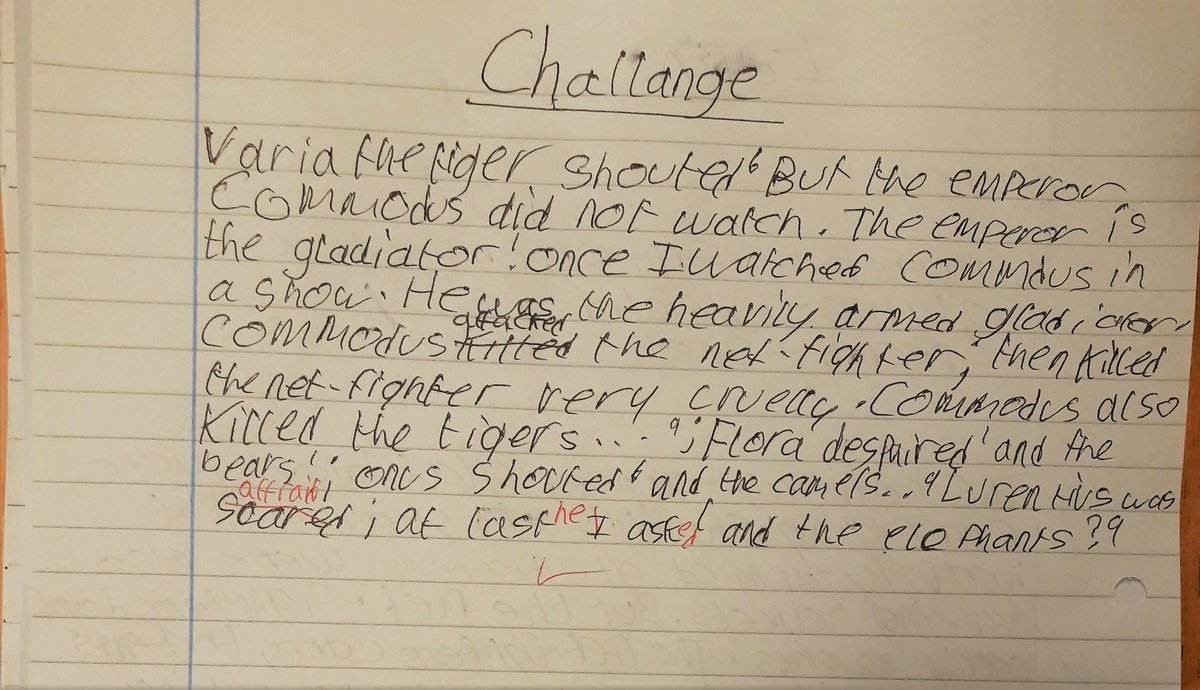 Challange
Varia the tiger shouted ‘But the emperor
Commodus did not watch. The emperor is
the gladiator! once I watched Commdus in
a show. He was the heavily armed gladiator,
attacked
Commodus killed the net-fighter, then killed
the net-fighter very cruelly. Commodus also
killed the tigers... ’; Flora despaired ‘and the
bears’; onus shouted ‘ and the camels... ’ Lurentius was
affraid
scared ; at last he I asked and the elephants?’